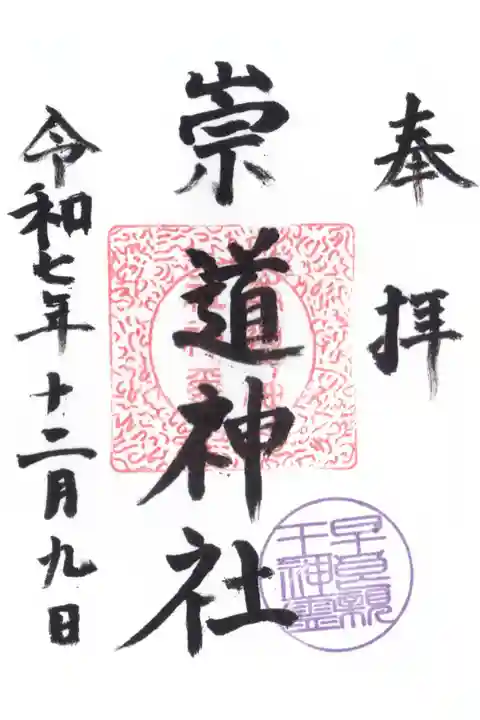 奉拝
崇道神社
早良親
王神霊
令和七年十二月九日